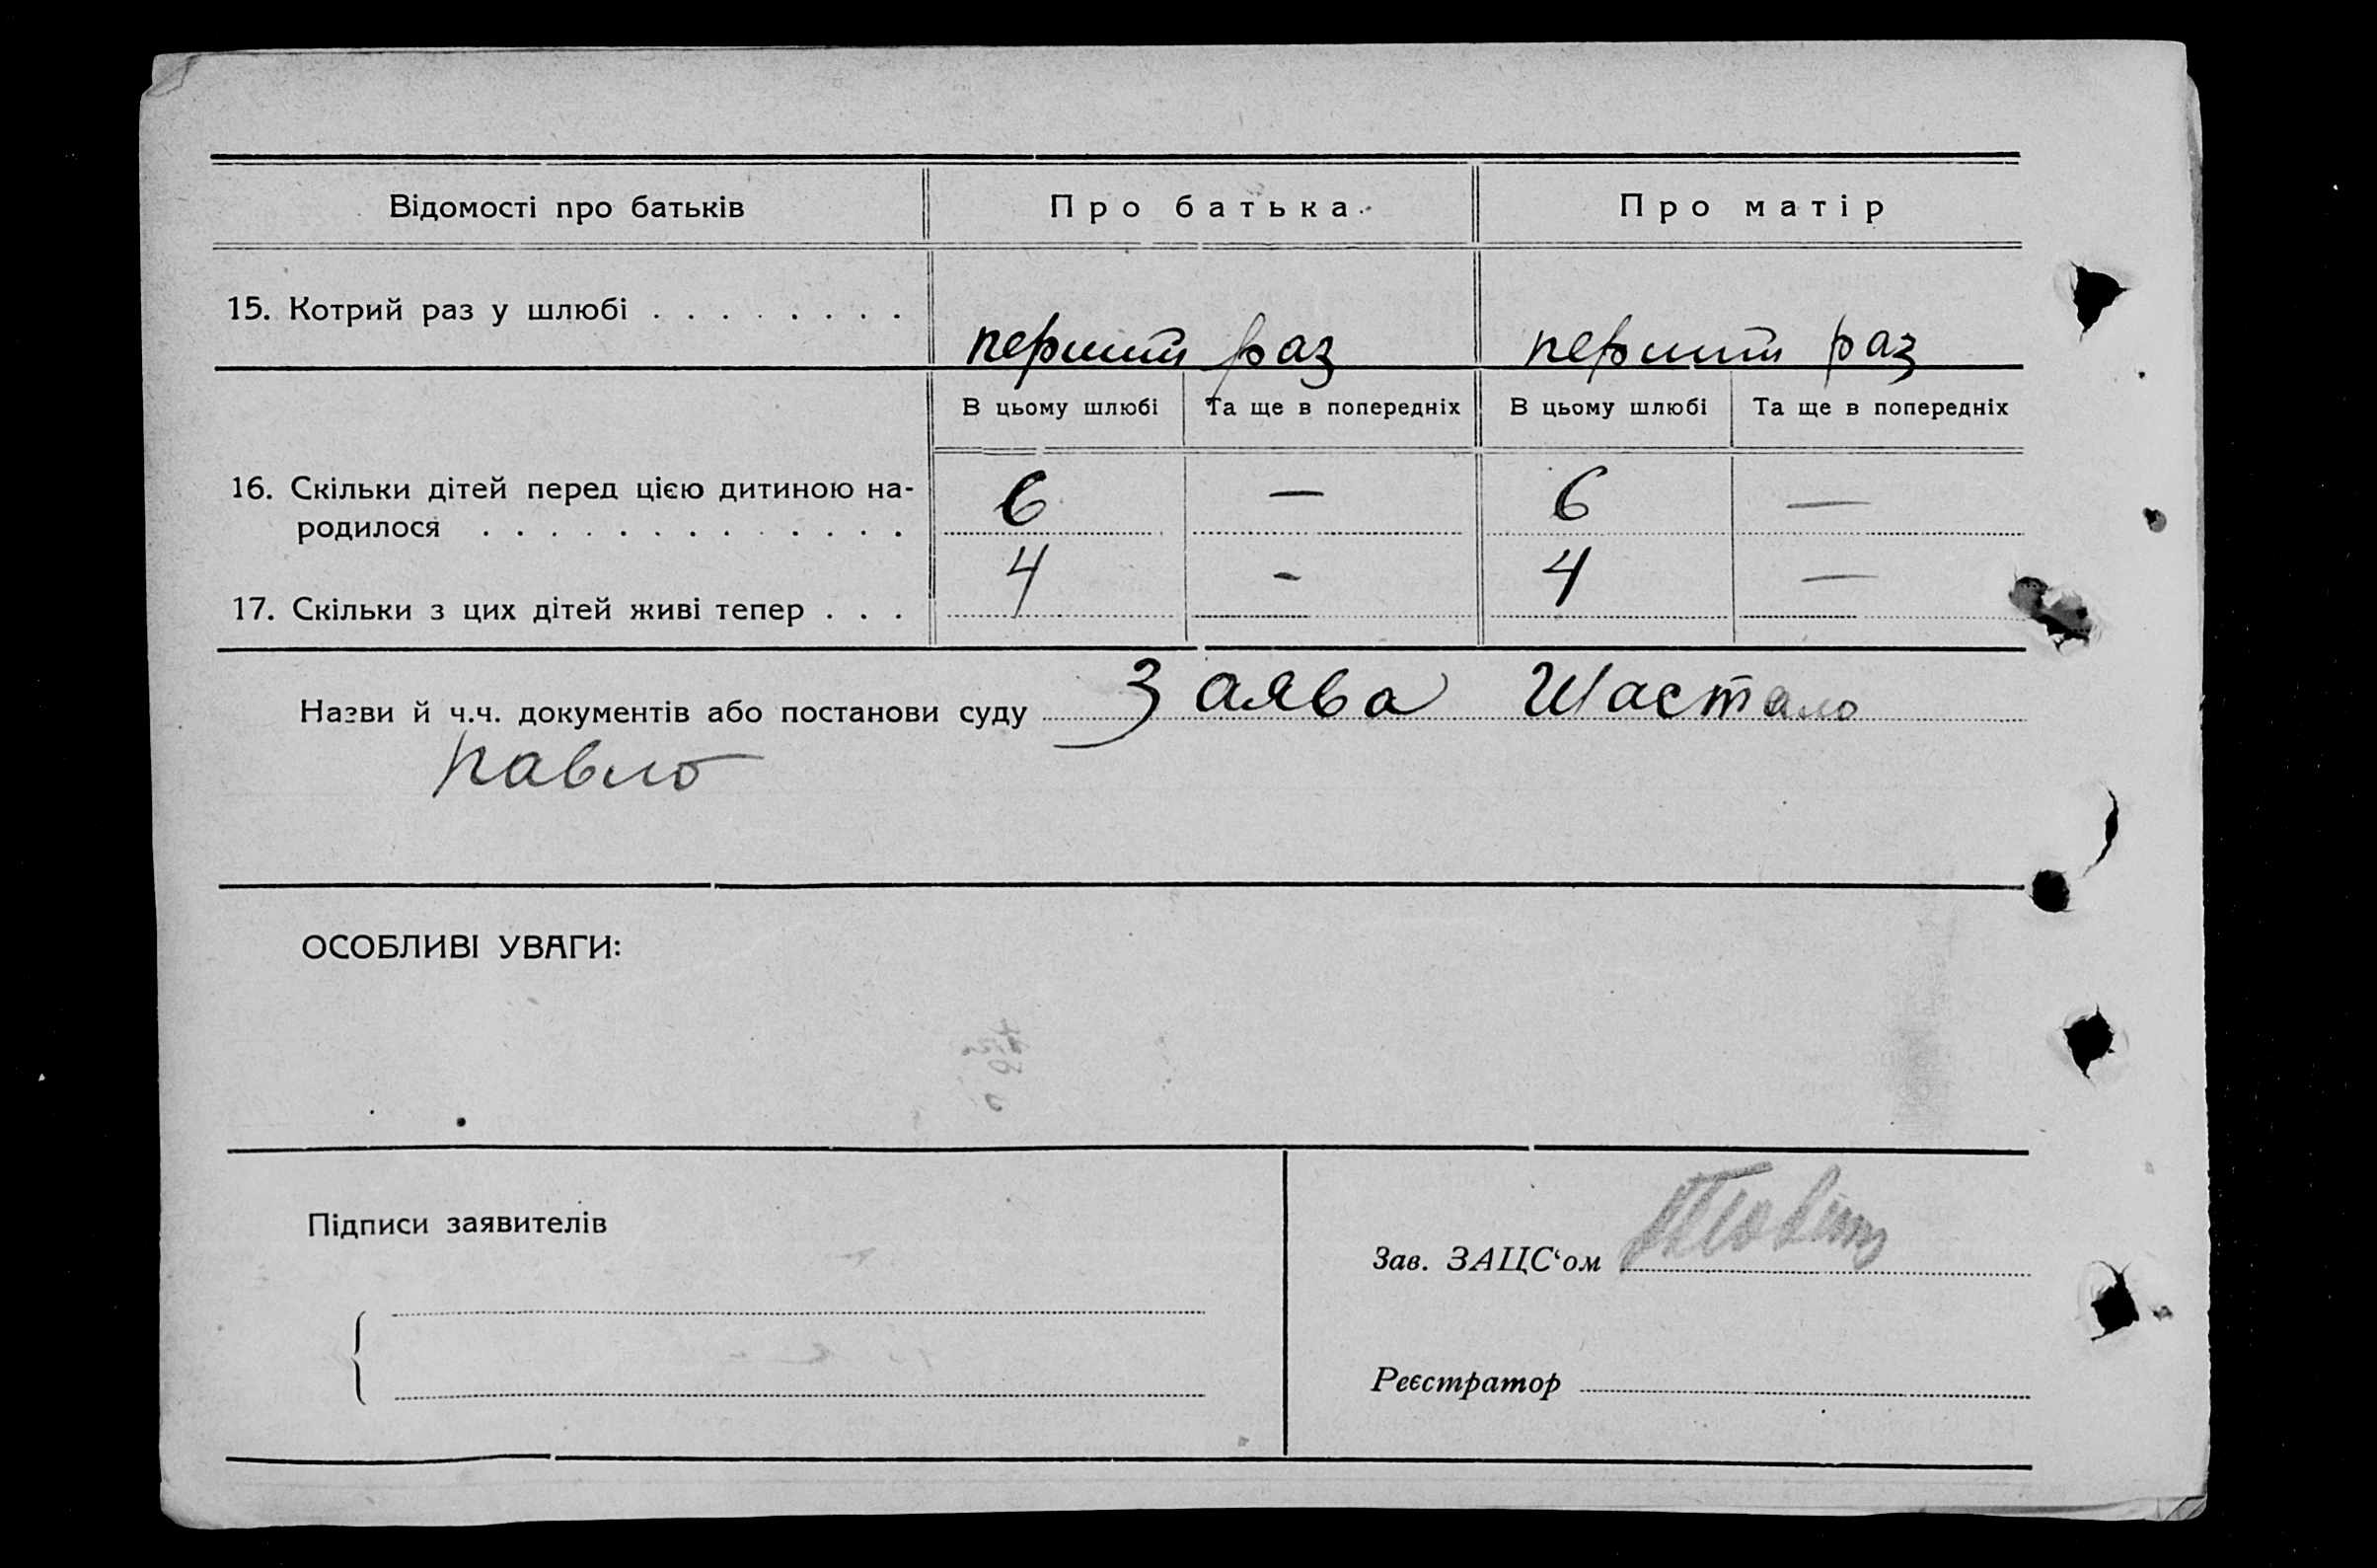 Відомості про батьків Про батька Про матір
15. Котрий раз у шлюбі . . . . . . . . перший раз перший раз
В цьому шлюбі Та ще в попередніх В цьому шлюбі Та ще в попередніх
16. Скільки дітей перед цією дитиною на- 6 — 6 —
родилося . . . . . . . . . . . . .
17. Скільки з цих дітей живі тепер . . . 4 - 4 —
Назви й ч.ч. документів або постанови суду Заява Шастало
Павло
ОСОБЛИВІ УВАГИ:
Підписи заявителів
Зав. ЗАЦС‘ом
Реєстратор